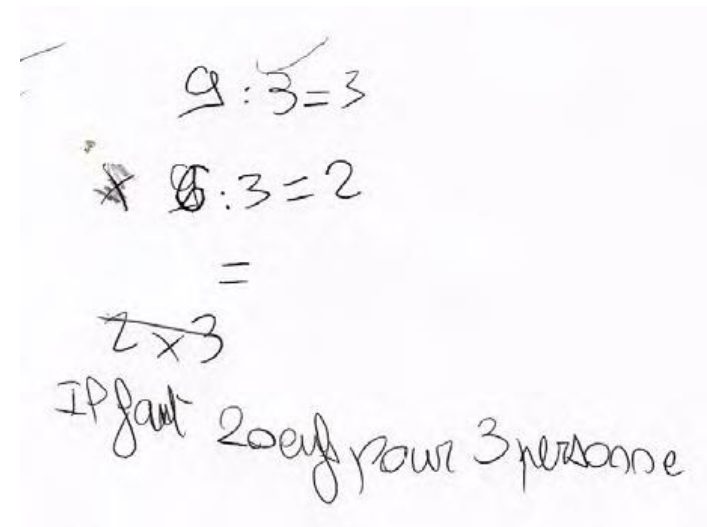 9 : 3 = 3
x 6 : 3 = 2
=
2 x 3
Il faut 2 oeufs pour 3 personne